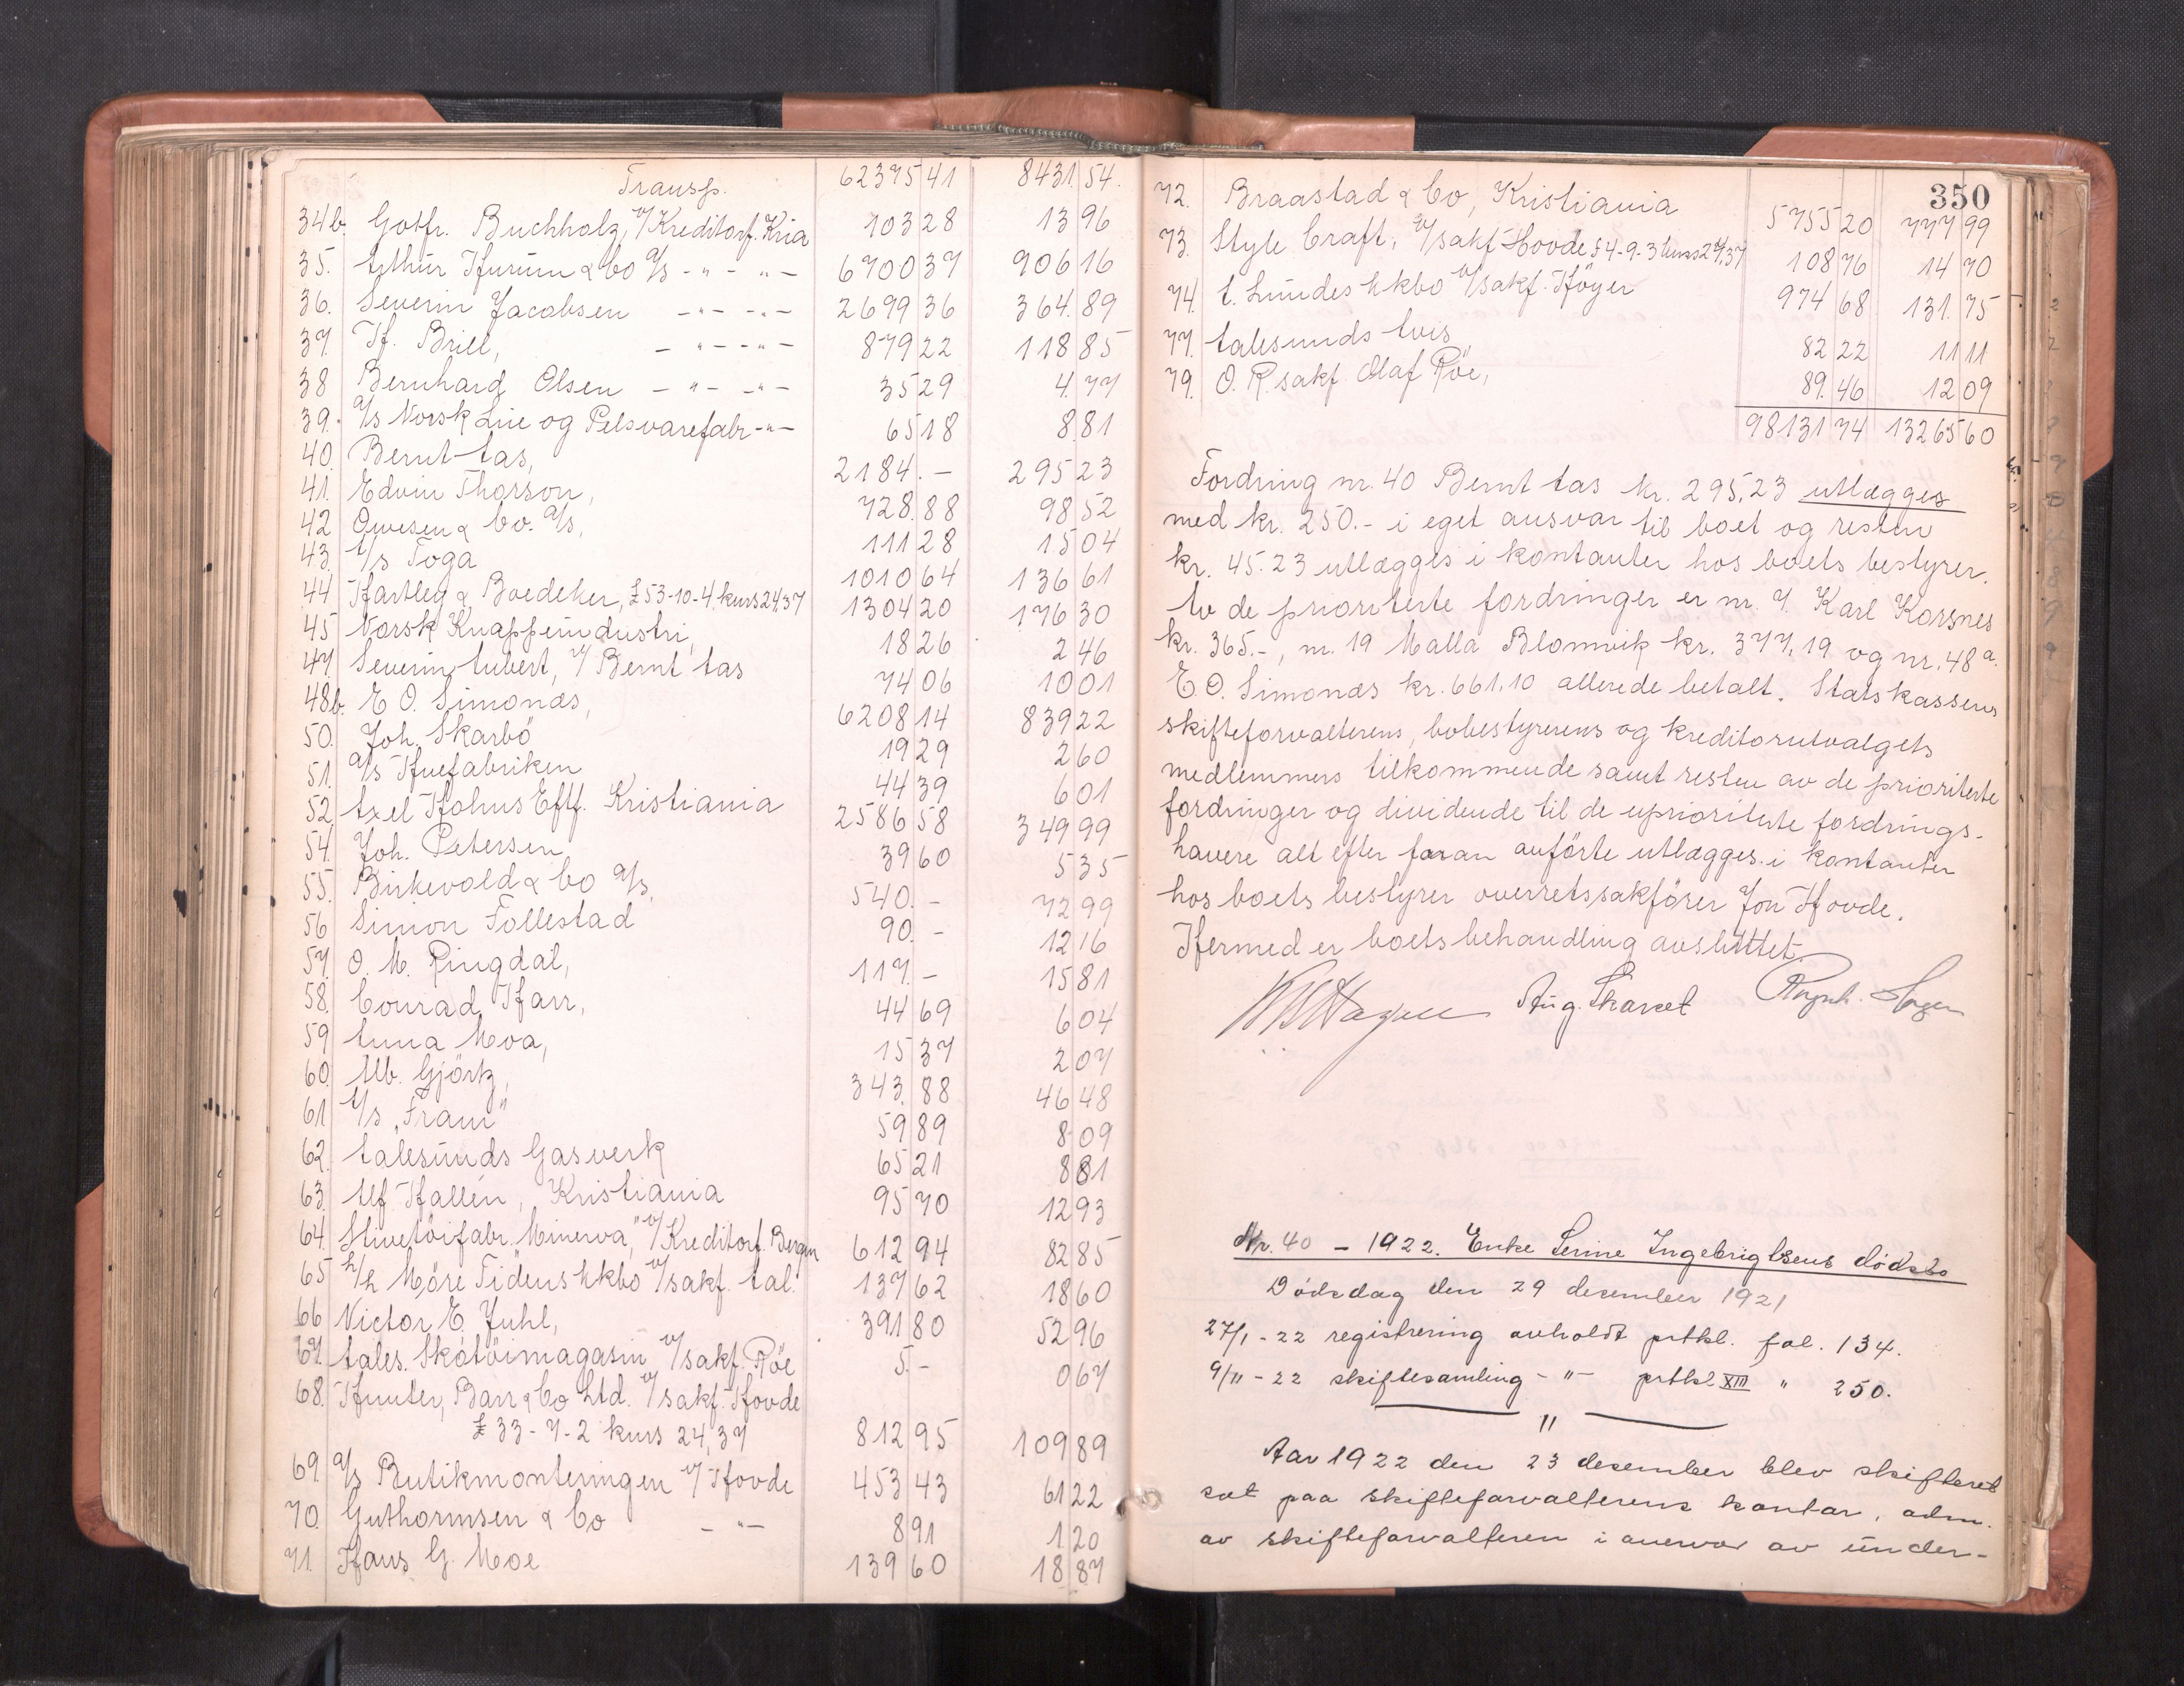 Transp. 62375 41 8431 54.
34b. Gotfr. Buchholz, v/ Kreditorf. Kria 103 28 13 96
35. Arthur Hurum & Co A/S - " - " - 6700 37 906 16
36. Severin Jacobsen - " - " - 2699 36 364.89
37. H. Brill, - " - " - 879 22 118 85
38 Bernhard Olsen - " - " - 35 29 4.77
39. A/S Norsk Lue og Pelsvarefabr - " - 65 18 8 81
40. Bernt Aas, 2184. - 295 23
41. Edvin Thorson, 728.88 98 52
42 Owesen & Co. A/S, 111 28 15 04
43. A/S Toga 1010 64 136 61
44 Hartley & Boedeker, £ 53-10-4, kurs 24.37 1304 20 176 30
45 Norsk Knappeindustri, 18 26 2 46
47. Severin Aubert, v/ Bernt Aas 74 06 10 01
48b. E. O. Simonæs, 6208 14 839 22
50. Joh. Skarbö 19 29 2 60
51. A/S Huefabriken 44 39 6 01
52. Axel Hohns Eftf. Kristiania 2586 58 349 99
54. Joh. Petersen 39 60 5 35
55. Birkevold & Co A/S, 540. - 72 99
56 Simon Follestad 90. - 12 16
57. O. M. Ringdal, 117. - 15 81
58. Conrad Harr, 44 69 6 04
59 Anna Moa, 15 37 2 07
60. Alb. Gjörtz, 343.88 46 48
61 A/S "Fram" 59 89 8 09
62. Aalesunds Gasverk 65 21 8 81
63. Alf Hallén, Kristiania 95 70 12 93
64. Stivetöifabr. "Minerva," v/ Kreditorf. Bergen 612 94 82 85
65 h/l Möre Tidens hkbo v/ sakf. Aal. 137 62 18 60
66 Victor E. Juhl, 391 80 52 96
67. Aales. Skotöimagasin v/ sakf. Röe 5. - 0 67
68. Hunter, Barr & Co Ltd. v/ sakf. Hovde
£ 33-7-2 kurs 24,37 812 95 109 89
69. A/S Butikmonteringen v/ Hovde 453 43 61 22
70. Guthormsen & Co - " - 8 91 1 20
71. Hans G. Moe 139 60 18 87
350
72. Braastad & Co, Kristiania 5755 20 777 99
73. Style Craft, v/ sakf. Hovde £ 4-9-3 kurs 24,37 108 76 14 70
74. A. Lundes hkbo v/ sakf. Höyer 974 68 131.75
77. Aalesunds Avis, 82 22 11 11
79. O. R. sakf. Olaf Röe, 89.46 12 09
98131 74 13265 60
Fordring nr. 40 Bernt Aas kr. 295,23 utlægges
med kr. 250.- i eget ansvar til boet og resten
kr. 45.23 utlægges i kontanter hos boets bestyrer.
Av de prioriterte fordringer er nr. 7. Karl Korsnes
kr. 365.-, nr. 19 Malla Blomvik kr. 377,19 og nr. 48a.
E. O. Simonæs kr. 661,10 allerede betalt. Statskassens
skifteforvalterens, bobestyrerens og kreditorutvalgets
medlemmers tilkommende samt resten av de prioriterte
fordringer og dividende til de uprioriterte fordrings-
havere alt efter foran anförte utlægges i kontanter
hos boets bestyrer overretssakförer Jon Hovde.
Hermed er boets behandling avsluttet.
Aug. Skaret
Nr. 40 - 1922. Enke Serine Ingebrigtsens dødsbo
Dødsdag den 29 desember 1921
27/1 - 22 registrering avholdt prtkl. fol. 134.
9/11 - 22 skiftesamling - " - prtkl XIII " 250.
"
Aar 1922 den 23 desember blev skifteret
sat paa skifteforvalterens kontor, adm.
av skifteforvalteren i nærvær av under-